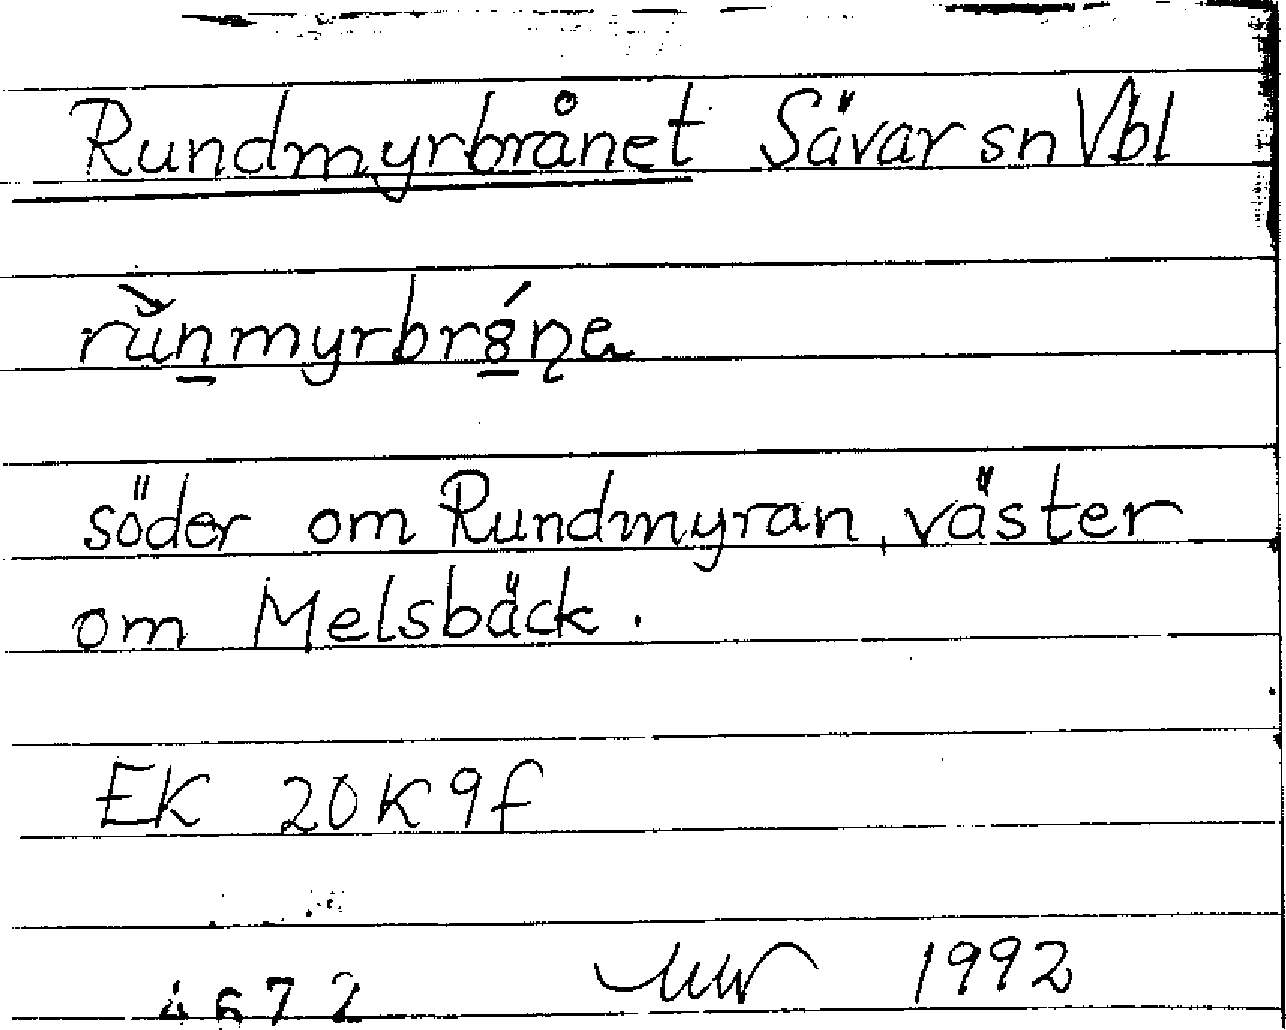 Rundmyrbrånet Sävar sn Vbl
söder om Rundmyran, väster
om Melsbäck.
EK 20K9f
1992
4672